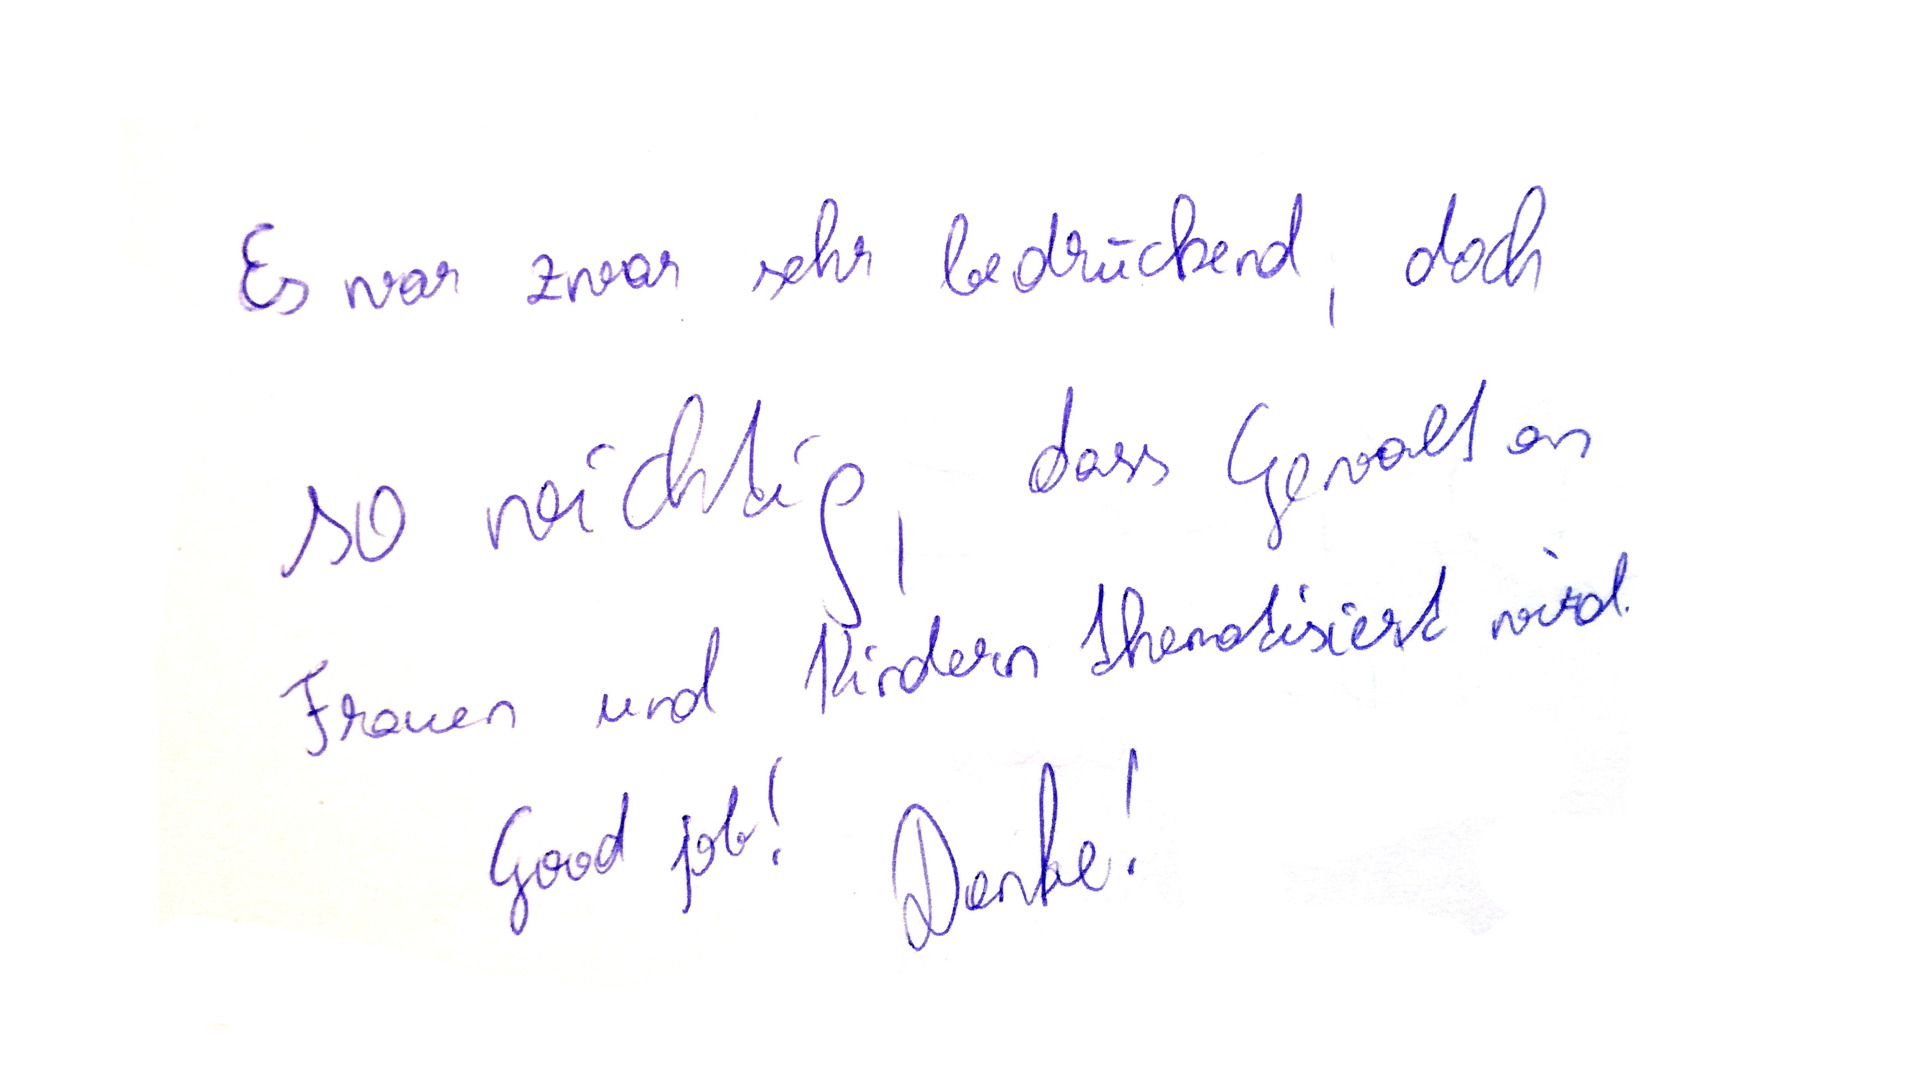 Es war zwar sehr bedrückend, doch
so wichtig, dass Gewalt an
Frauen und Kindern thematisiert wird.
Good job! Danke!